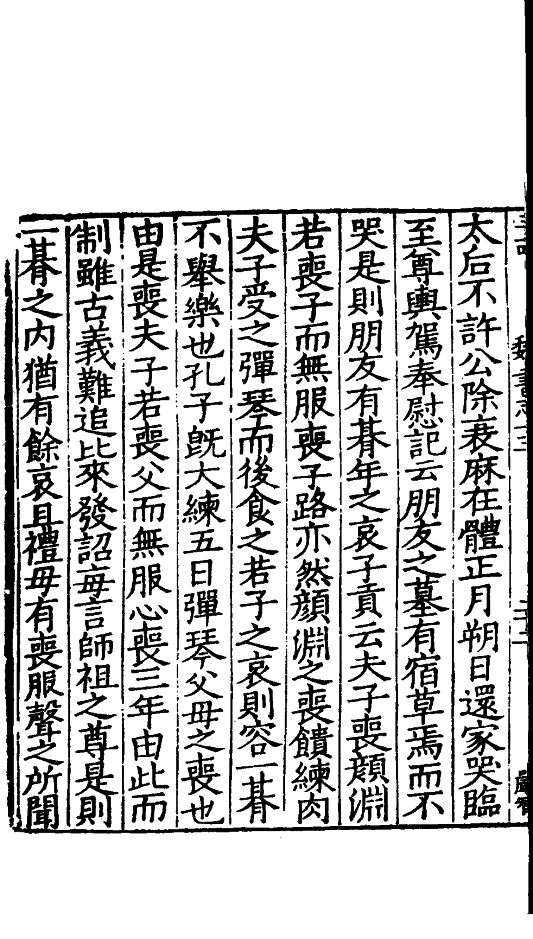 魏書志十三
二十二
太后不許公除衰麻在體正月朔日還家哭臨
至尊輿駕奉慰記云朋友之墓有宿草焉而不
哭是則朋友有朞年之哀子貢云夫子喪顔淵
若喪子而無服喪子路亦然顔淵之喪饋練肉
夫子受之彈琴而後食之若子之哀則容一朞
不舉樂也孔子旣大練五日彈琴父母之喪也
由是喪夫子若喪父而無服心喪三年由此而
制雖古義難追比來發詔每言師祖之尊是則
一朞之内猶有餘哀且禮毋有喪服聲之所聞